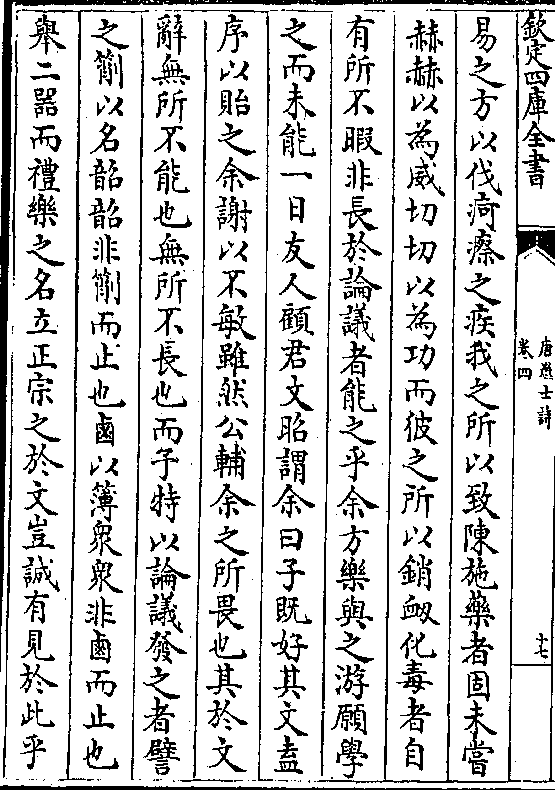 欽定四庫全書
唐愚士詩
卷四
十七
易之方以伐疴瘵之疾我之所以致陳施藥者固未嘗
赫赫以為威切切以為功而彼之所以銷衂化毒者自
有所不暇非長於論議者能之乎余方樂與之游願學
之而未能一日友人顧君文昭謂余曰子既好其文盍
序以貽之余謝以不敏雖然公輔余之所畏也其於文
辭無所不能也無所不長也而子特以論議發之者譬
之箾以名韶韶非箾而止也鹵以簿衆衆非鹵而止也
舉二器而禮樂之名立正宗之於文豈誠有見於此乎